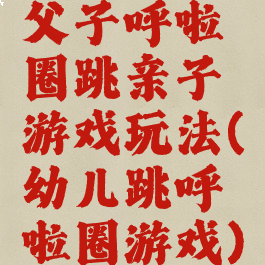 父子呼啦
圈跳亲子
游戏玩法(
幼儿跳呼
啦圈游戏)